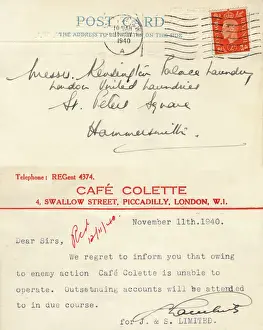 POST CARD
THE ADDRESS TO BE
1940
A
Messrs. Kensington Palace Laundry
London United Laundries
St. Peters Square
Hammersmith.
Telephone: REGent 4374.
CAFÉ COLETTE
4, SWALLOW STREET, PICCADILLY, LONDON, W.1.
November 11th.1940.
Dear Sirs,
We regret to inform you that owing
to enemy action Café Colette is unable to
operate. Outstanding accounts will be attended
to in due course.
for J. & S. LIMITED.